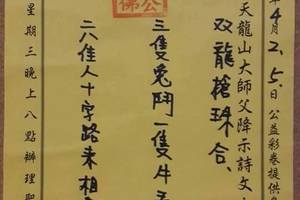 年4月2.5.日公益彩卷提供
天龍山大師父降示詩文
双龍搶珠合.
三隻兔鬥一隻牛
二八佳人十字路來相
星期三晚上八點辦理聖